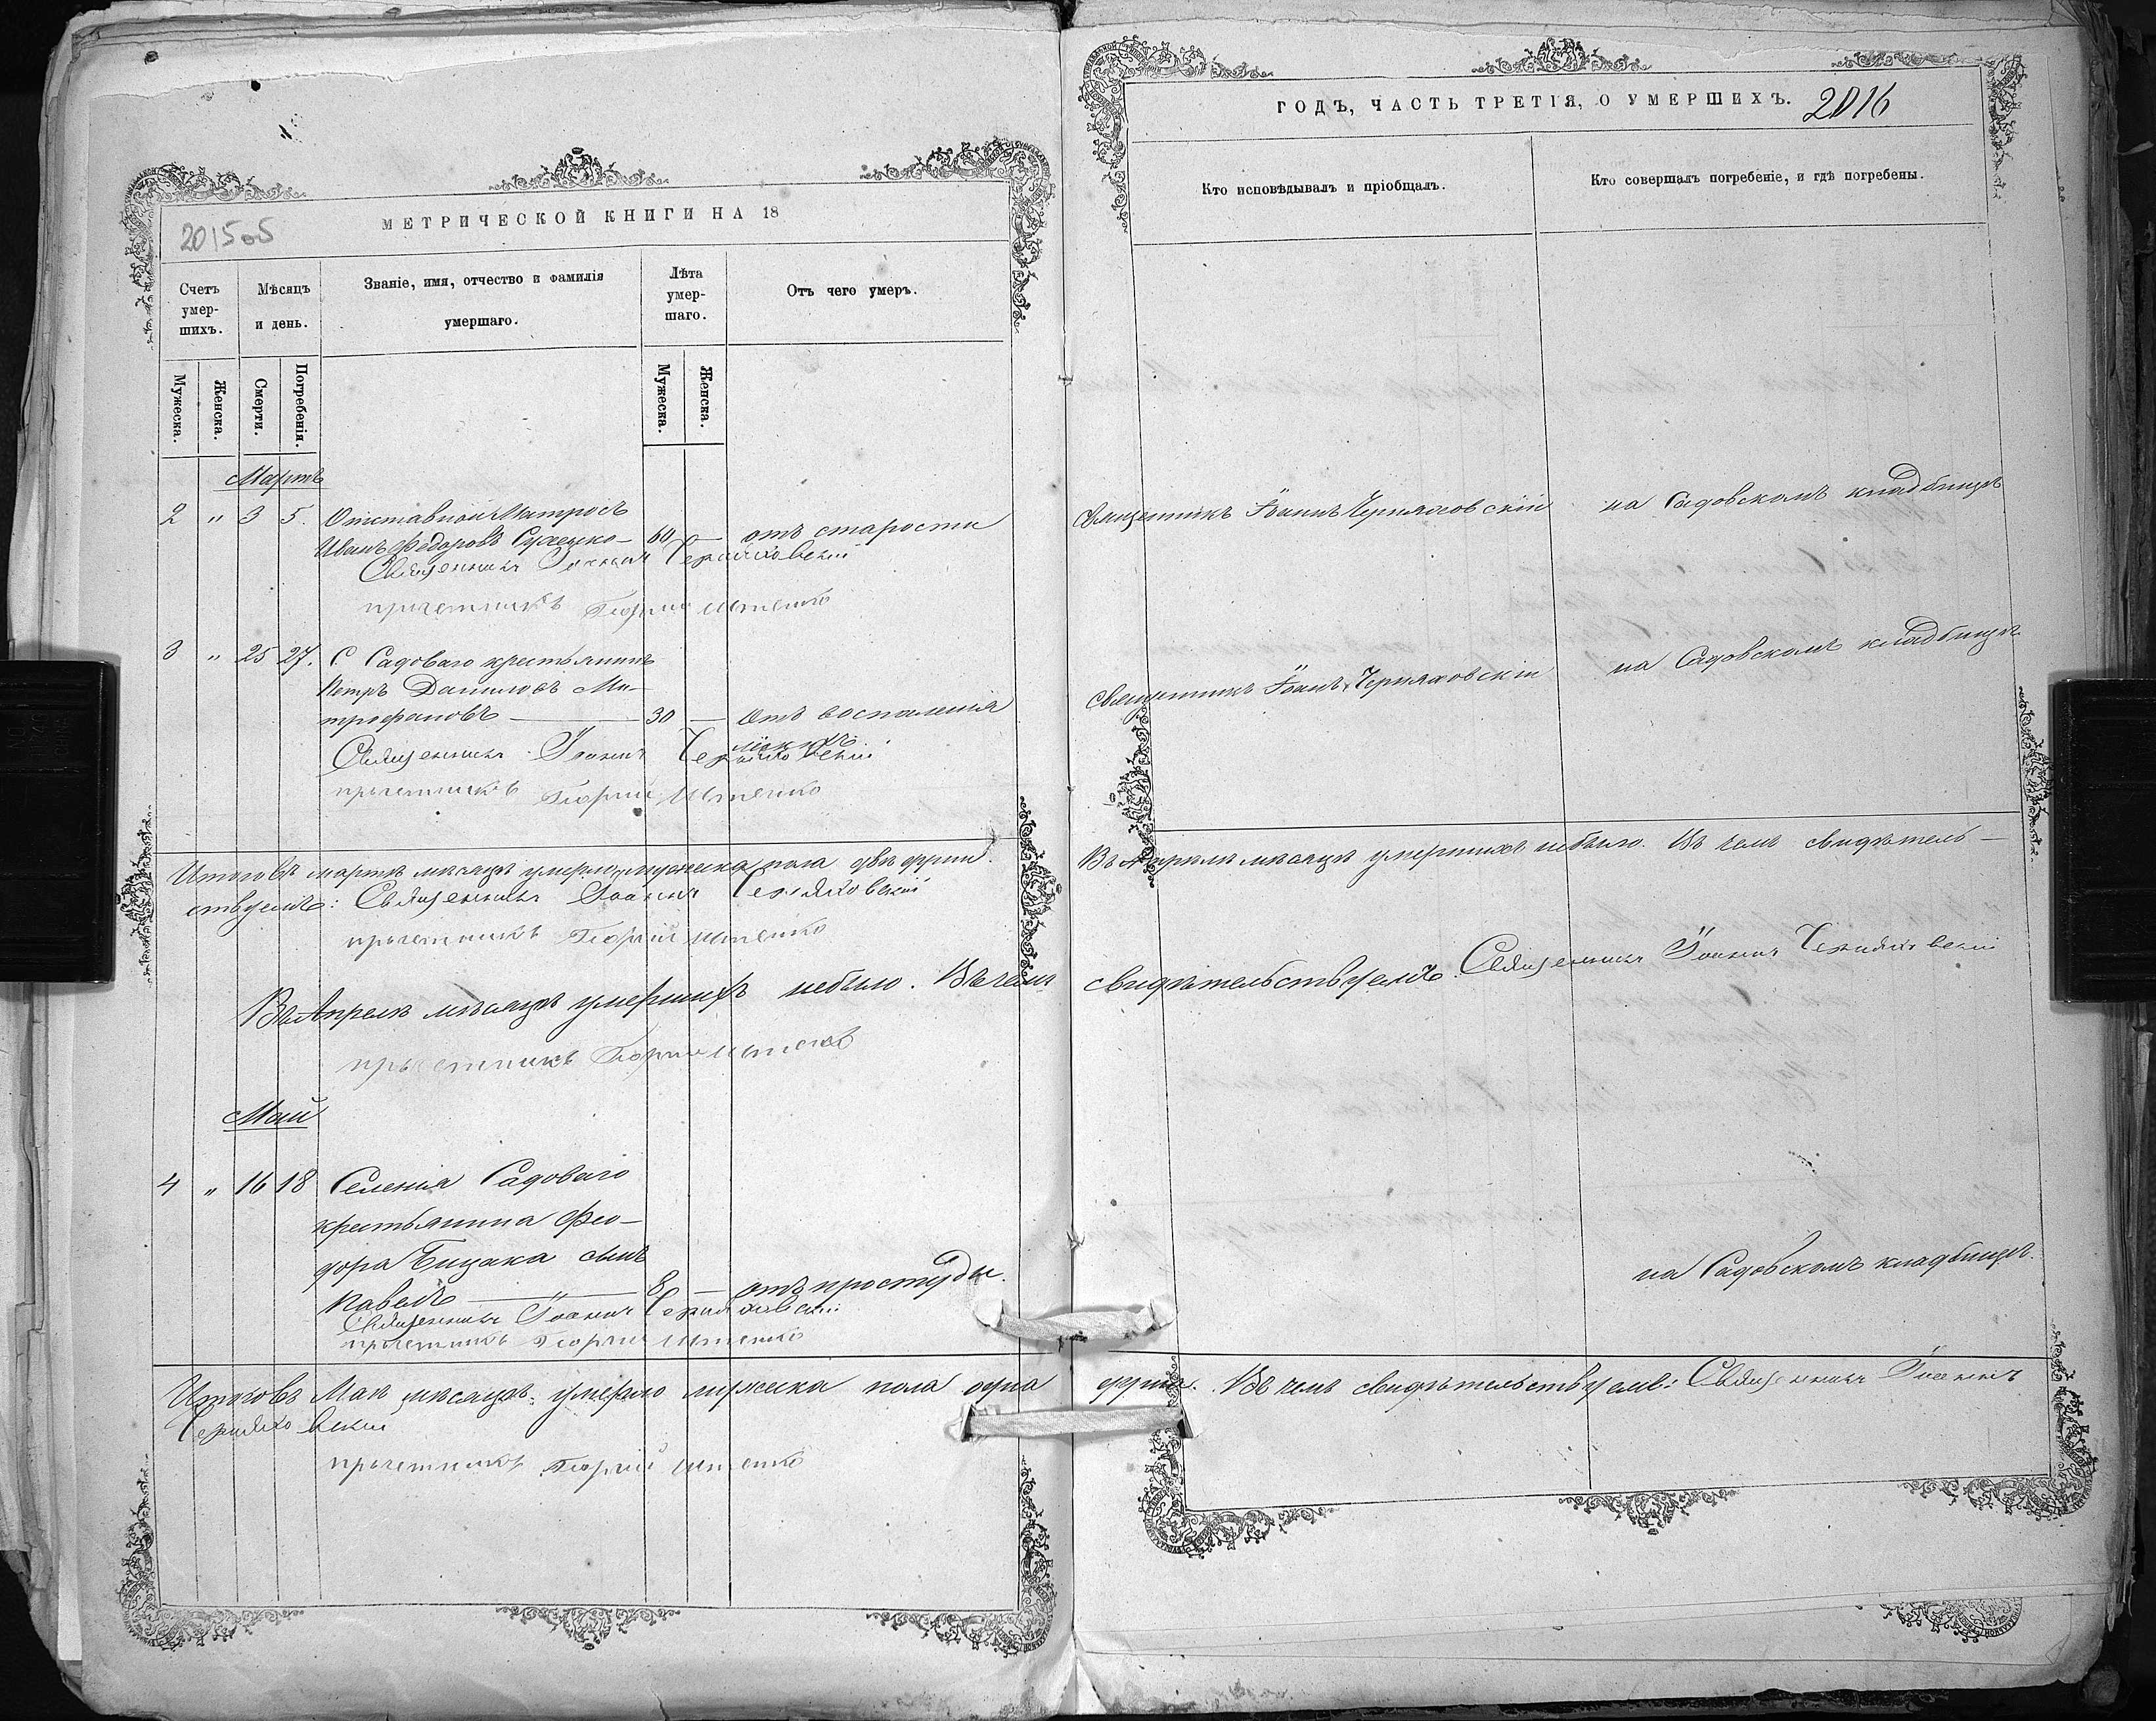 2015об
МЕТРИЧЕСКОЙ КНИГИ НА 18
Счетъ умер-шихъ.
Мѣсяцъ и день.
Званіе, имя, отчество и фамилія умершаго.
Лѣта умер-шаго.
Отъ чего умеръ.
Мужеска.
Женска.
Смерти.
Погребенія.
Мужеска.
Женска.
Мартъ
2 " 3 5. Отставной Матросъ
Иванъ Федоровъ 60 — отъ старости
Священникъ Іоаннъ Черняховскій
причетникъ Георгій
3 " 25 27. С. Садоваго крестьянинъ
Петръ Даниловъ Ми-
трофановъ — 30 — отъ воспаленія
легкихъ
Священникъ Іоаннъ Черняховскій
причетникъ Георгій
Итого въ мартѣ мѣсяцѣ умерло мужеска пола двѣ души.
ствуемъ: Священникъ Іоаннъ Черняховскій
причетникъ Георгій
Въ Апрелѣ мѣсяцѣ умершихъ небыло. Въ чемъ
причетникъ Георгій
Май
4 " 16 18 Селенія Садоваго
крестьянина Фео-
дора сынъ
Павелъ — 8 — отъ простуды.
Священникъ Іоаннъ Черняховскій
причетникъ Георгій
Итого въ Маѣ мѣсяцѣ умерло мужеска пола одна
Черняховскій
причетникъ Георгій
ГОДЪ, ЧАСТЬ ТРЕТІЯ, О УМЕРШИХЪ. 2016
Кто исповѣдывалъ и пріобщалъ.
Кто совершалъ погребеніе, и гдѣ погребены.
Священникъ Іоаннъ Черняховскій на Садовскомъ кладбищѣ
священникъ Іоаннъ Черняховскій на Садовскомъ кладбищѣ
Въ Апрелѣ мѣсяцѣ умершихъ небыло. Въ чемъ свидѣтель-
свидѣтельствуемъ Священникъ Іоаннъ Черняховскій
на Садовскомъ кладбищѣ.
душа. Въ чемъ свидѣтельствуемъ: Священникъ Іоаннъ